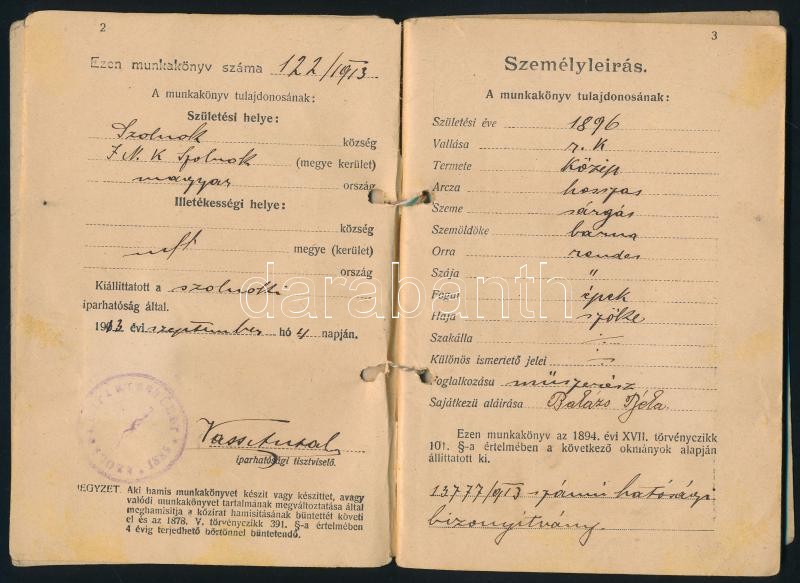 2
Ezen munkakönyv száma 122/1913
A munkakönyv tulajdonosának:
Születési helye:
Szolnok község
J. N. K Szolnok (megye kerület)
magyar ország
Illetékességi helye:
község
megye (kerület)
ország
Kiállittatott a szolnoki
iparhatóság által.
1913 évi szeptember hó 4 napján.
Vass Antal
iparhatósági tisztviselő.
JEGYZET. Aki hamis munkakönyvet készit vagy készittet, avagy
valódi munkakönyvet tartalmának megváltoztatása által
meghamisitja a közirat hamisitásának büntettét követi
el és az 1878. V. törvényczikk 391. §-a értelmében
4 évig terjedhető börtönnel büntetendő.
3
Személyleirás.
A munkakönyv tulajdonosának:
Születési éve 1896
Vallása r. k
Termete közép
Arcza hosszas
Szeme sárgás
Szemöldöke barna
Orra rendes
Szája "
Fogai épek
Haja szőke
Szakálla
Különös ismertető jelei
Foglalkozása műszerész
Sajátkezü aláirása Balázs Béla
Ezen munkakönyv az 1894. évi XVII. törvényczikk
101. §-a értelmében a következő okmányok alapján
állittatott ki.
13777/913 számú hatósági
bizonyitvány.
darabanth